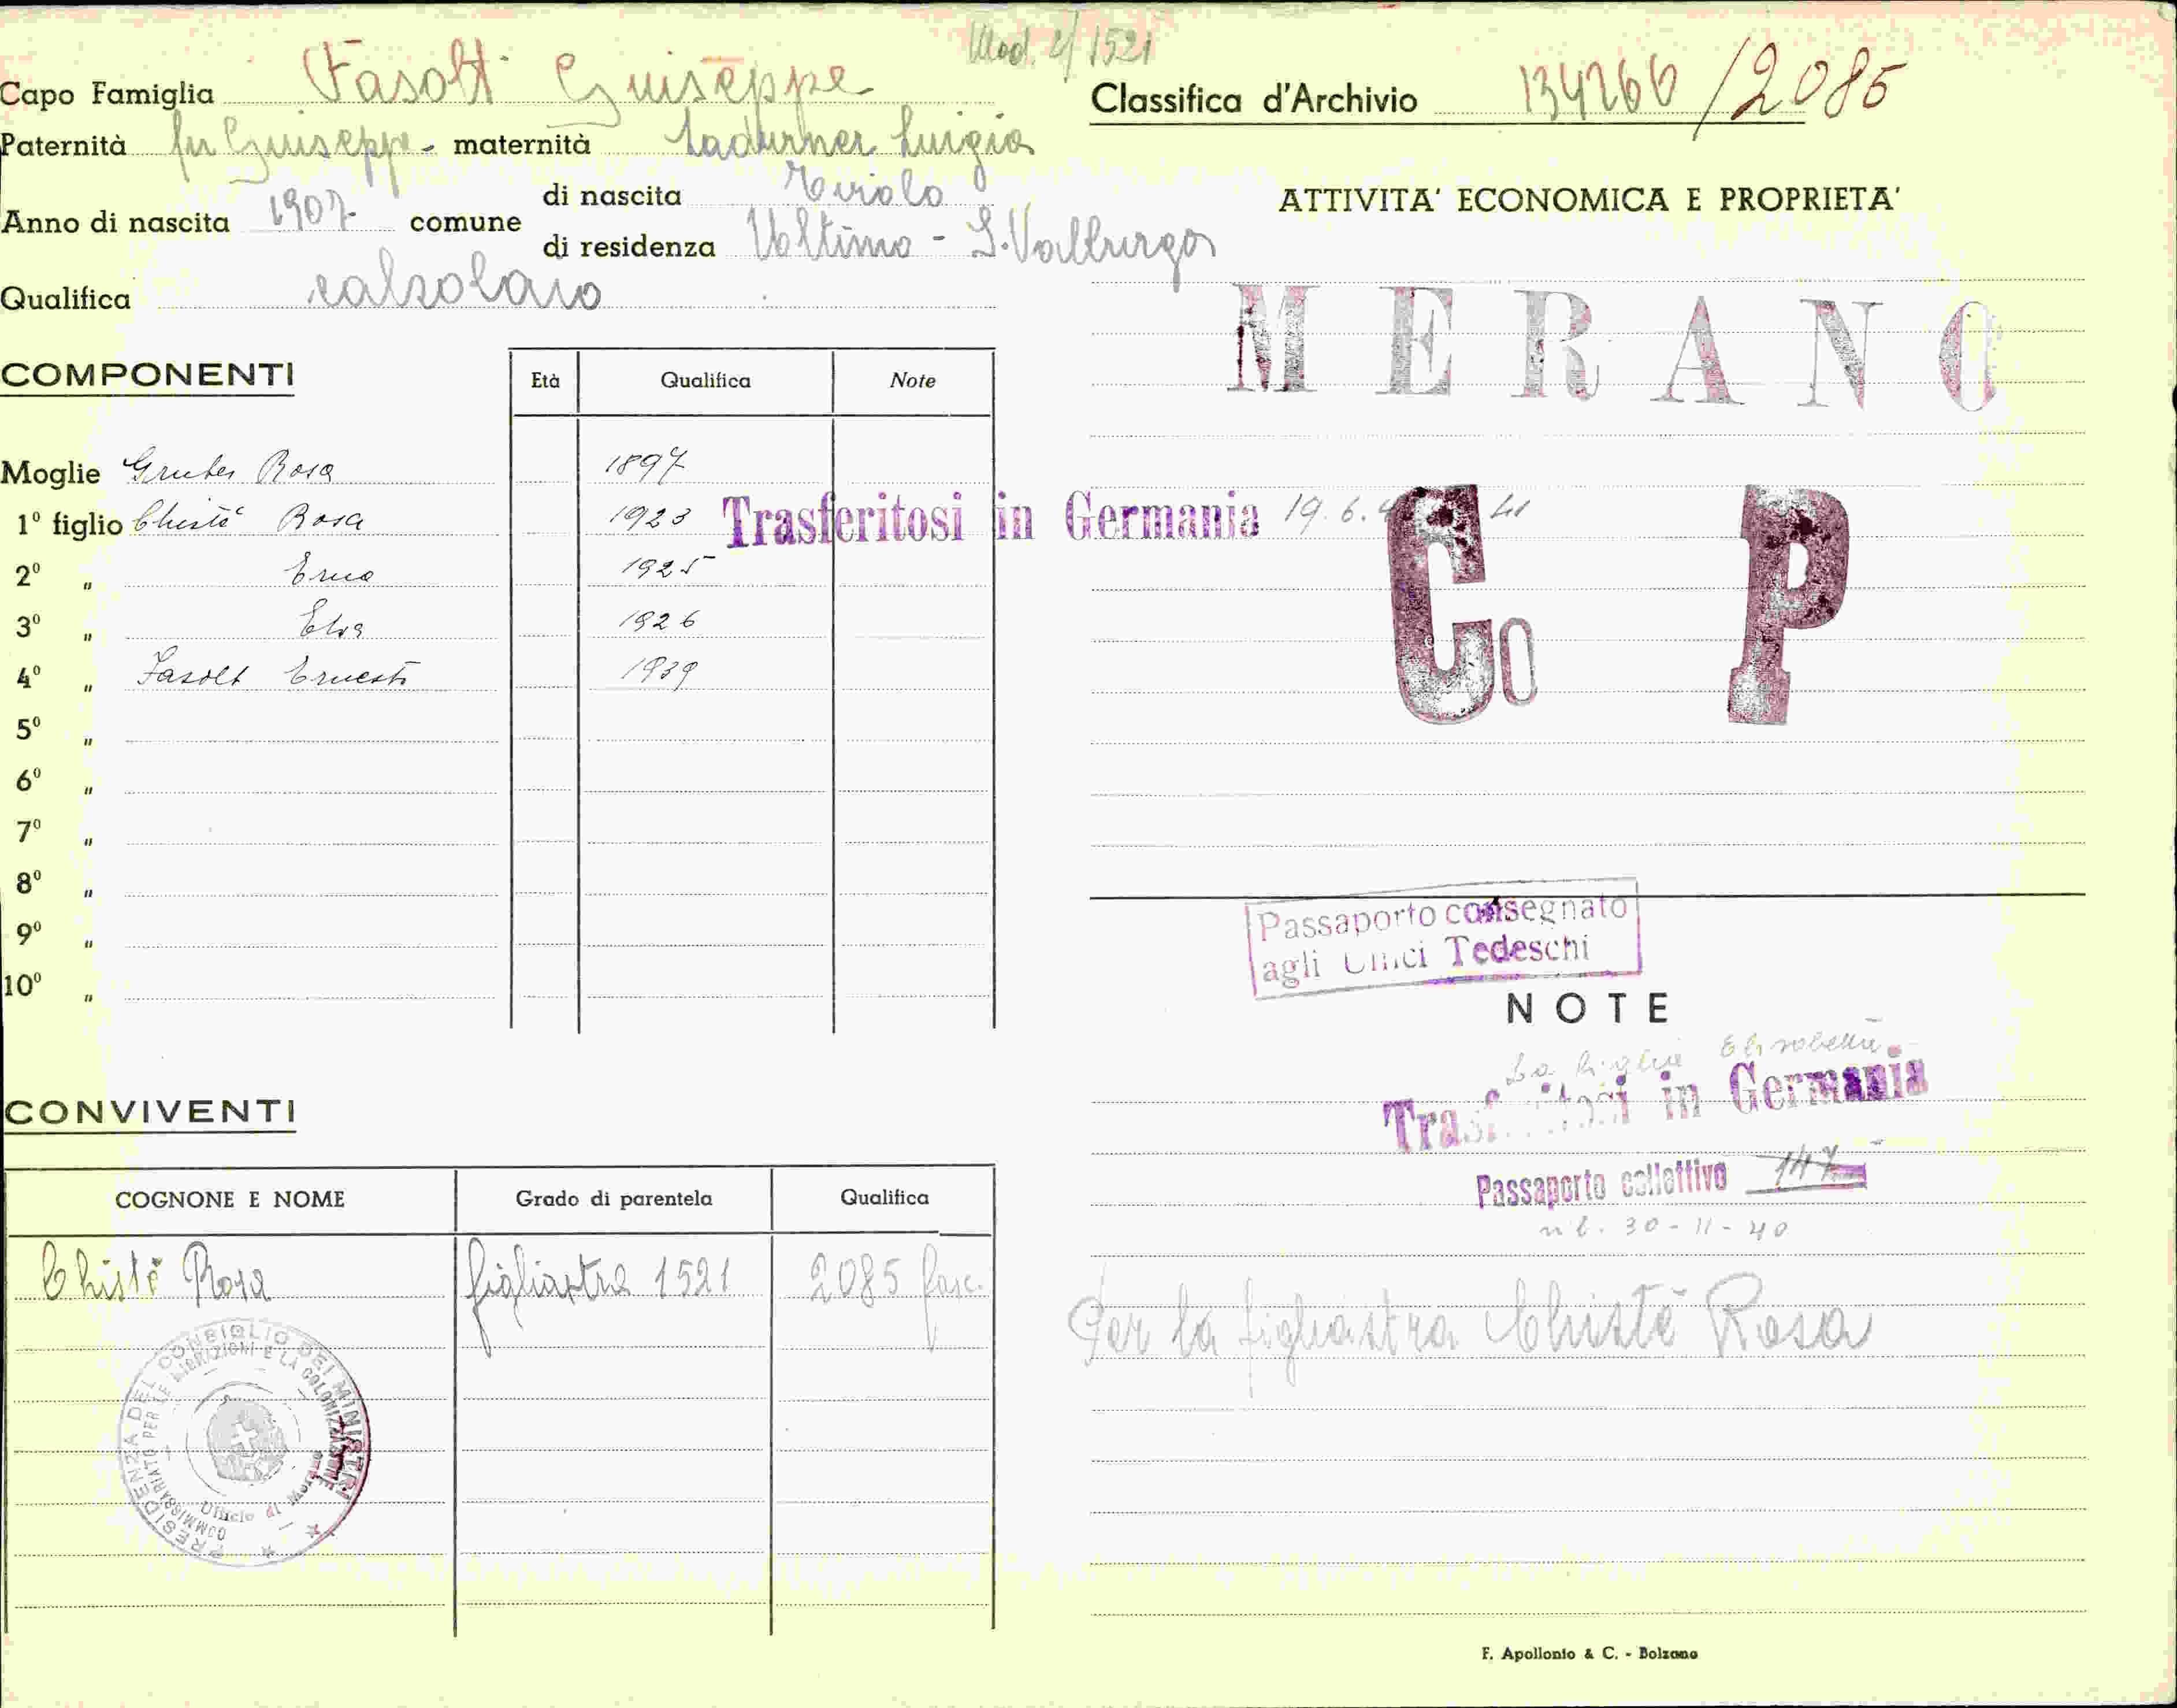 Mod. 2/1521
Capo Famiglia Fasolt Guiseppe
Paternità fu Guiseppe - maternità Ladurner Luigia
Anno di nascita 1907 comune di nascita
di residenza Ultimo - S. Valburga
Qualifica calzolaio
COMPONENTI
Età Qualifica Note
Moglie Gruber Rosa 1897
1º figlio Chistè Rosa 1923 Trasferitosi in Germania 19.6.41
2º " Erna 1925
3º " Elsa 1926
4º " Fasolt Ernesto 1939
5º "
6º "
7º "
8º "
9º "
10º "
CONVIVENTI
COGNONE E NOME Grado di parentela Qualifica
Chistè Rosa figliastra 1521 2085 fasc.
PRESIDENZA DEL CONSIGLIO DEI MINISTRI
COMMISSARIATO PER LE MIGRAZIONI E LA COLONIZZAZIONE
Ufficio di Merano
Classifica d'Archivio 134266/2085
ATTIVITA' ECONOMICA E PROPRIETA'
MERANO
Co P
Passaporto consegnato
agli Uffici Tedeschi
NOTE
La figlia Elisabetta
Trasferitosi in Germania
Passaporto collettivo 147
30-11-40
Per la figliastra Chistè Rosa
F. Apollonio & C. - Bolzano